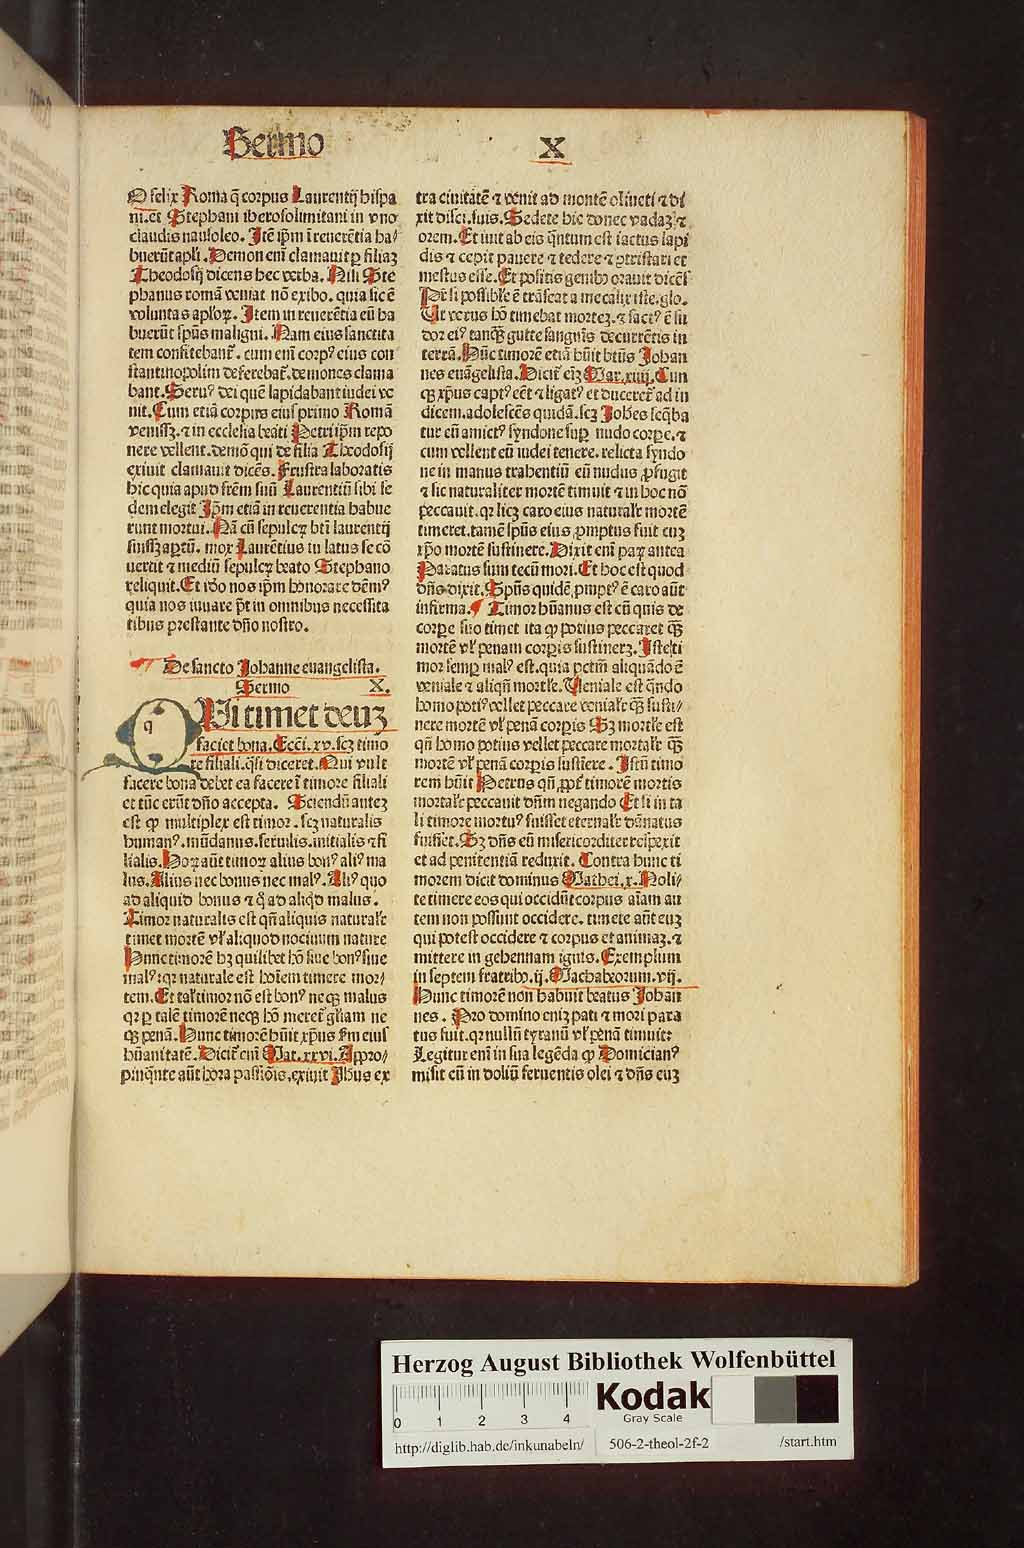 Sermo X
O felix Roma q̄ corpus Laurentij hispa
ni.et Stephani iherosolimitani in vno
claudis nausoleo. Itē ip̄m ī reuerētia ha⸗
buerūt apl̄i. Demon enī clamauit ꝑ filiaꝫ
Theodosij dicens hec verba. Nisi Ste
phanus romā veniat nō exibo. quia sic ē
voluntas apl̓oꝝ. Item in reuerētia eū ha
buerūt sp̄us maligni. Nam eius sanctita
tem confitebant᷑. cum enī corpꝰ eius con
stantinopolim deferebat᷑. demones clama
bant. Seruꝰ dei quē lapidabant iudei ve
nit. Cum etiā corpus eius primo Romā
venissꝫ. ⁊ in ecclesia beati Petri ip̄m repo
nere vellent. demō qui de filia Theodosij
exiuit clamauit dicēs. Frustra laboratis
hic quia apud fr̄em suū Laurentiū sibi se
dem elegit Ip̄m etiā in reuerentia habue
runt mortui. Nā cū sepulcꝝ bt̄i laurentij
fuissꝫ aꝑtū. mox Laurētius in latus se cō
uertit ⁊ mediū sepulcꝝ beato Stephano
reliquit. Et id̓o nos ip̄m honorare dēmꝰ
quia nos iuuare p̄t in omnibus necessita
tibus prestante dn̄o nostro.
De sancto Johanne euangelista.
Sermo X.
q
QUi timet deuꝫ
faciet bona. Ecc̄i. xv. scꝫ timo
re filiali. q̄si diceret. Qui vult
facere bona debet ea facere ī timore filiali
et tūc erūt dn̄o accepta. Sciendū auteꝫ
est ꝙ multiplex est timor. scꝫ naturalis
humanꝰ. mūdanus. seruilis. initialis ⁊ fi
lialis. Hoꝝ aūt timoꝝ alius bonꝰ aliꝰ ma
lus. Alius nec bonus nec malꝰ. Aliꝰ quo
ad aliquid bonus ⁊ q̄ ad aliqd̓ malus.
Timor naturalis est qn̄ aliquis naturalr̓
timet mortē vl̓ aliquod nociuum nature
Hunc timorē hꝫ quilibet hō siue bonꝰ siue
malꝰ: qꝛ naturale est hoīem timere mor⸗
tem. Et tal̓ timor nō est bonꝰ neqꝫ malus
qꝛ ꝑ talē timorē neqꝫ hō meret᷑ gr̄am ne
qꝫ penā. Hunc timorē hūit xp̄us ẜm eius
hūanitatē. Dicit᷑ enī Mat. xxvi. Appro⸗
pinq̄nte aūt hora passiōis, exiuit Jhūs ex
tra ciuitatē ⁊ venit ad montē oliueti ⁊ di
xit disci. suis. Sedete hic donec vadaꝫ ⁊
orem. Et iuit ab eis q̄ntum est iactus lapi
dis ⁊ cepit pauere ⁊ tedere ⁊ ꝯtristari et
mestus esse. Et positis genibꝰ orauit dicēs
Pr̄ si possibl̓e ē trāseat a me calix iste. glo.
Ut verus hō timebat morteꝫ. ⁊ factꝰ ē su
dor eiꝰ tanqꝫ gutte sanguīs decurrētis in
terrā. Hūc timorē etiā hūit bt̄us Johan
nes euāgelista. Dicit᷑ eīꝫ Mar. xiiij. Cum
qꝫ xp̄us captꝰ eēt ⁊ ligatꝰ et duceret᷑ ad iu
dicem. adolescēs quidā. scꝫ Joh̄es seq̄ba
tur eū amictꝰ syndone suꝑ nudo corꝑe. ⁊
cum vellent eū iudei tenere. relicta syndo
ne in manus trahentiū eū nudus ꝓfugit
⁊ sic naturaliter mortē timuit ⁊ in hoc nō
peccauit. qꝛ licꝫ caro eius naturalr̓ mortē
timeret. tamē sp̄us eius ꝓmptus fuit cuꝫ
xp̄o mortē sustinere. Dixit enī paꝝ antea
Paratus sum tecū mori. Et hoc est quod
dn̄s dixit. Sp̄us quidē ꝓmptꝰ ē caro aūt
infirma. ¶ Timor hūanus est cū quis de
corꝑe suo timet ita ꝙ potius peccaret qꝫ
mortē vl̓ penam corꝑis sustineret. Iste ti
mor semꝑ malꝰ est. quia petm̄ aliquādo ē
veniale ⁊ aliqn̄ mortl̓e. Veniale est qn̄do
homo potiꝰ vellet peccare venialr̓ qꝫ susti⸗
nere mortē vl̓ penā corꝑis Sꝫ mortl̓e est
qn̄ homo potius vellet peccare mortalr̓ qꝫ
mortē vl̓ penā corꝑis sustinere. Istū timo
rem hūit Petrus qn̄ ꝓpt᷑ timorē mortis
mortalr̓ peccauit dn̄m negando Et si in ta
li timore mortuꝰ fuisset eternalr̓ dānatus
fuisset. Sꝫ dn̄s eū misericorditer respexit
et ad penitentiā reduxit. Contra hunc ti
morem dicit dominus Mathei. x. Noli⸗
te timere eos qui occidūt corpus aīam au
tem non possunt occidere. timete aūt euꝫ
qui potest occidere ⁊ corpus et animaꝫ. ⁊
mittere in gehennam ignis. Exemplum
in septem fratribꝰ. ij. Machabeorum. vij.
Hunc timorē non habuit beatus Johan
nes. Pro domino enīꝫ pati ⁊ mori para
tus fuit. qꝛ nullū tyranū vl̓ penā timuit:
Legitur enī in sua legēda ꝙ Domicianꝰ
misit eū in doliū feruentis olei ⁊ dn̄s euꝫ
Herzog August Bibliothek Wolfenbüttel
Kodak
Gray Scale
0 1 2 3 4
http://diglib.hab.de/inkunabeln/ 506-2-theol-2f-2 /start.htm